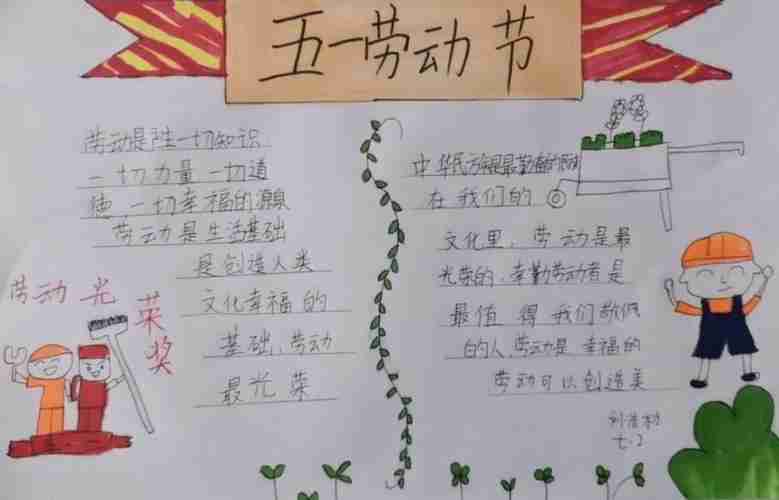 五一劳动节
劳动是产生一切知识
一切力量一切道
德、一切幸福的源泉
劳动是生活基础
是创造人类
文化幸福的
基础,劳动
最光荣
劳动光荣
奖
中华民族是最勤的民
在我们的
文化里,劳动是最
光荣的,辛勤劳动者是
最值得我们敬佩
的人,劳动是幸福的
劳动可以创造美
七.2